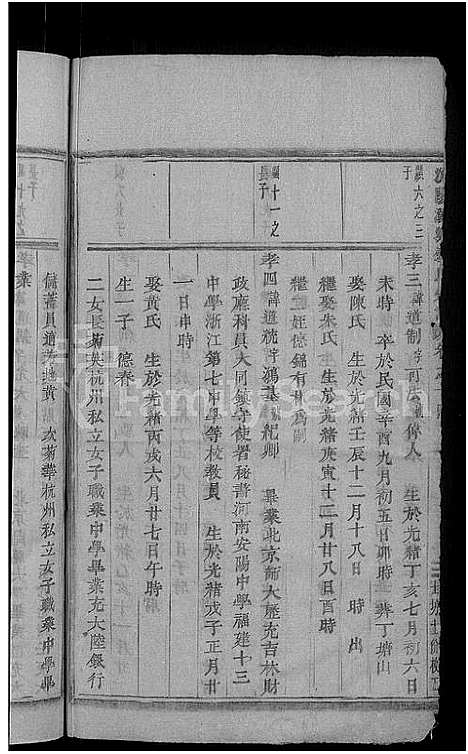 鐄六之三子
孝三 諱道制 字可法 號偉人 生於光緒丁亥七月初六日
未時 卒於民國辛酉九月初五日卯時 葬丁塘山
娶陳氏 生於光緒壬辰十二月十八日 時
繼娶朱氏 生於光緒庚寅十二月廿八日酉時
繼 姪德錦有林為嗣
十一之長子
孝四 諱道統 鴻基 紀卿 畢業北京師大歷充吉林財
政廳科員大同鎮守使署秘書河南安陽中學福建十三
中學浙江第七中學等校教員 生於光緒戊子正月廿
一日申時
娶黃氏 生於光緒丙戌六月廿七日午時
生一子 德春
二女長菊英杭州私立女子職業中學畢業充大陸銀行
儲蓄員適 黃 次菊華杭州私立女子職業中學畢
業